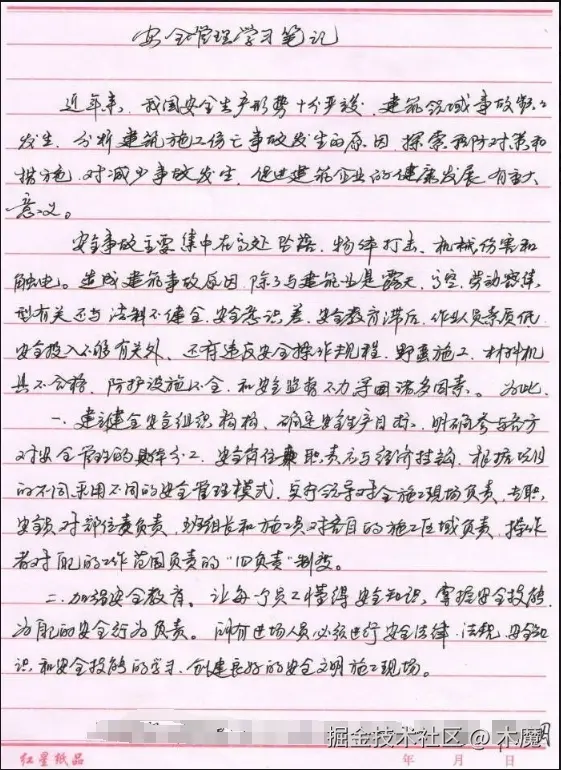 安全管理学习笔记
近年来，我国安全生产形势十分严峻，建筑领域事故频频
发生，分析建筑施工伤亡事故发生的原因，探索预防对策和
措施，对减少事故发生，促进建筑企业的健康发展，有重大
意义。
安全事故主要集中在高处坠落、物体打击、机械伤害和
触电。造成建筑事故原因，除了与建筑业是露天、高空、劳动密集
型有关，还与法料不健全，安全意识差，安全教育滞后，作业人员素质低，
安全投入不够有关外，还有违反安全操作规程，野蛮施工，材料机
具不合格，防护设施不全，和安全监督不力等因诸多因素。为此，
一、建立健全安全组织机构，确定安全生产目标，明确参与各方
对安全管理的职责分工，安全岗位职责充与经济挂钩，根据项目
的不同采用不同的安全管理模式，实行领导对全施工现场负责，专职
安全员对部位责负责，班组长和施工员对各自的施工区域负责，操作
者对自己的工作范围负责的“四负责”制度。
二、加强安全教育。让每个员工懂得安全知识，掌握安全技能，
为自己的安全行为负责。所有进场人员必须进行安全法律、法规、安全知
识和安全技能的学习，创建良好的安全文明施工现场。
掘金技术社区 @ 木魔
红星纸品 年 月 日